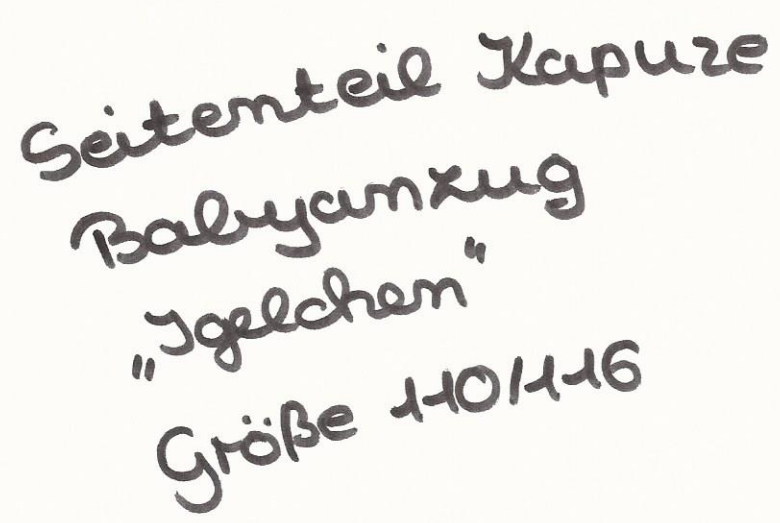 Seitenteil Kapuze
Babyanzug
„Igelchen“
Größe 110/116